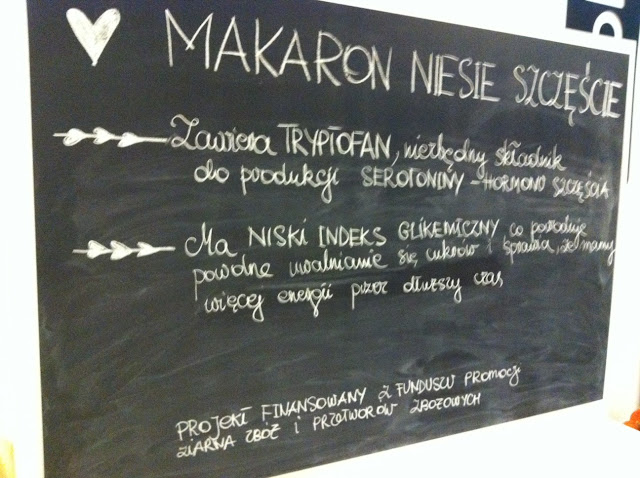 MAKARON NIESIE SZCZĘŚCIE
Zawiera TRYPTOFAN, niezbędny składnik
do produkcji SEROTONINY - HORMONU SZCZĘŚCIA
Ma NISKI INDEKS GLIKEMICZNY, co powoduje
powolne uwalnianie się cukrów i sprawia, że mamy
więcej energii przez dłuższy czas
PROJEKT FINANSOWANY Z FUNDUSZU PROMOCJI
ZIARNA ZBÓŻ I PRZETWORÓW ZBOŻOWYCH